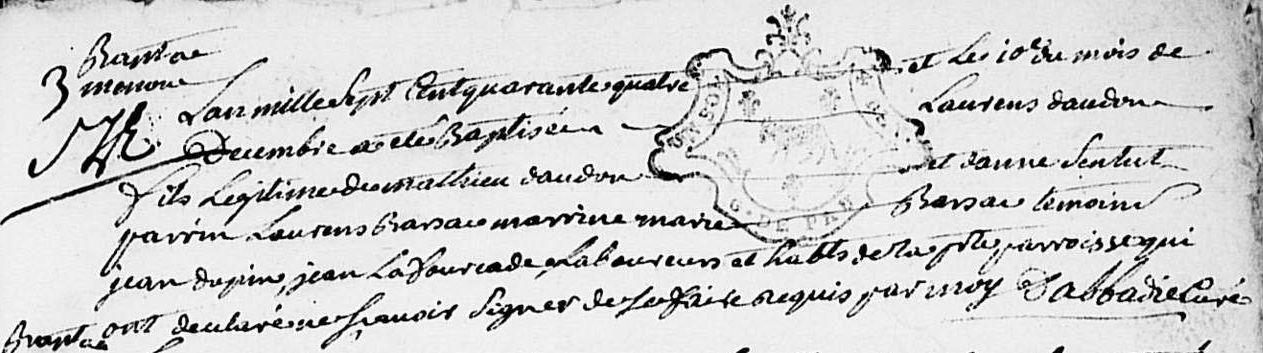 Bapt de
3 menone
L'an mille Sept Cent quarante quatre et Le 10e du mois de
Decembre a eté Baptisé Laurens daudon
fils Legitime de mathieu daudon et danne Sentut
parrin Laurens Barsac marrine marie Barsac temoins
jean dupin, jean Lafourcade Laboureurs et habts de la pste parroisse qui
ont declaré ne scavoir Signer de Ce faire Requis par moy Dabbadie Curé
Bapt de